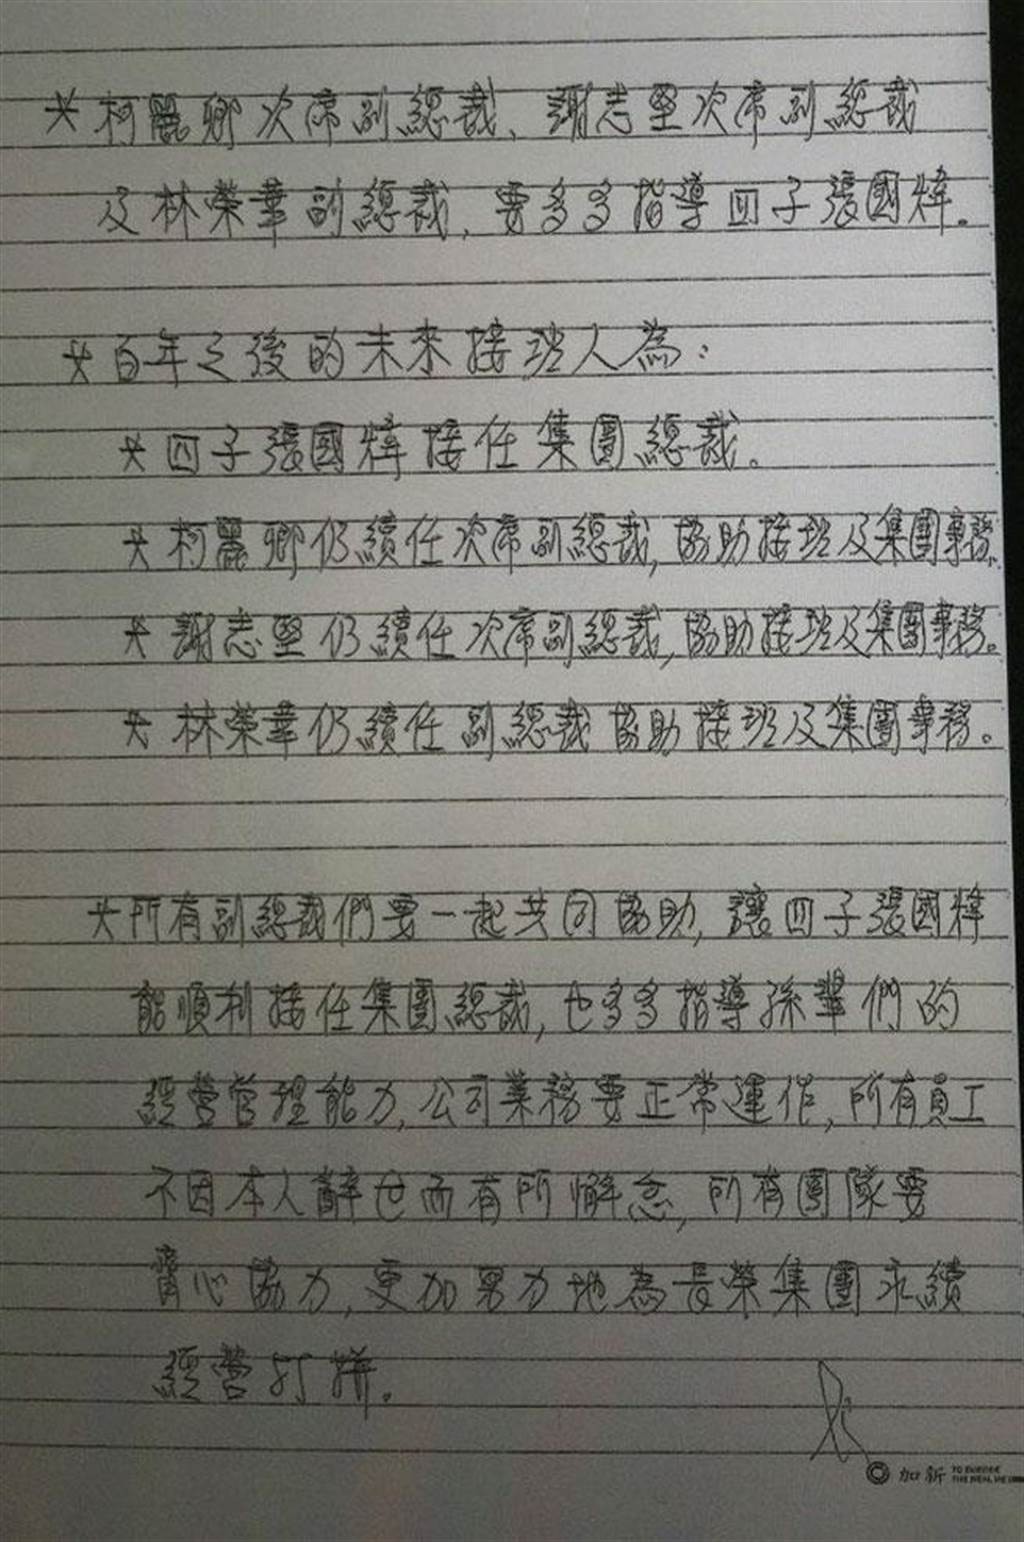 *柯麗卿次席副總裁、謝志堅次席副總裁
及林榮華副總裁,要多多指導四子張國煒。
*百年之後的未來接班人為:
*四子張國煒接任集團總裁。
*柯麗卿仍續任次席副總裁,協助接班及集團事務。
*謝志堅仍續任次席副總裁,協助接班及集團事務。
*林榮華仍續任副總裁協助接班及集團事務。
*所有副總裁們要一起共同協助,讓四子張國煒
能順利接任集團總裁,也多多指導孫輩們的
經營管理能力,公司業務要正常運作,所有員工
不因本人辭世而有所懈怠,所有團隊要
齊心協力,更加努力地為長榮集團永續
經營打拼。
加新 TO BUSINESS